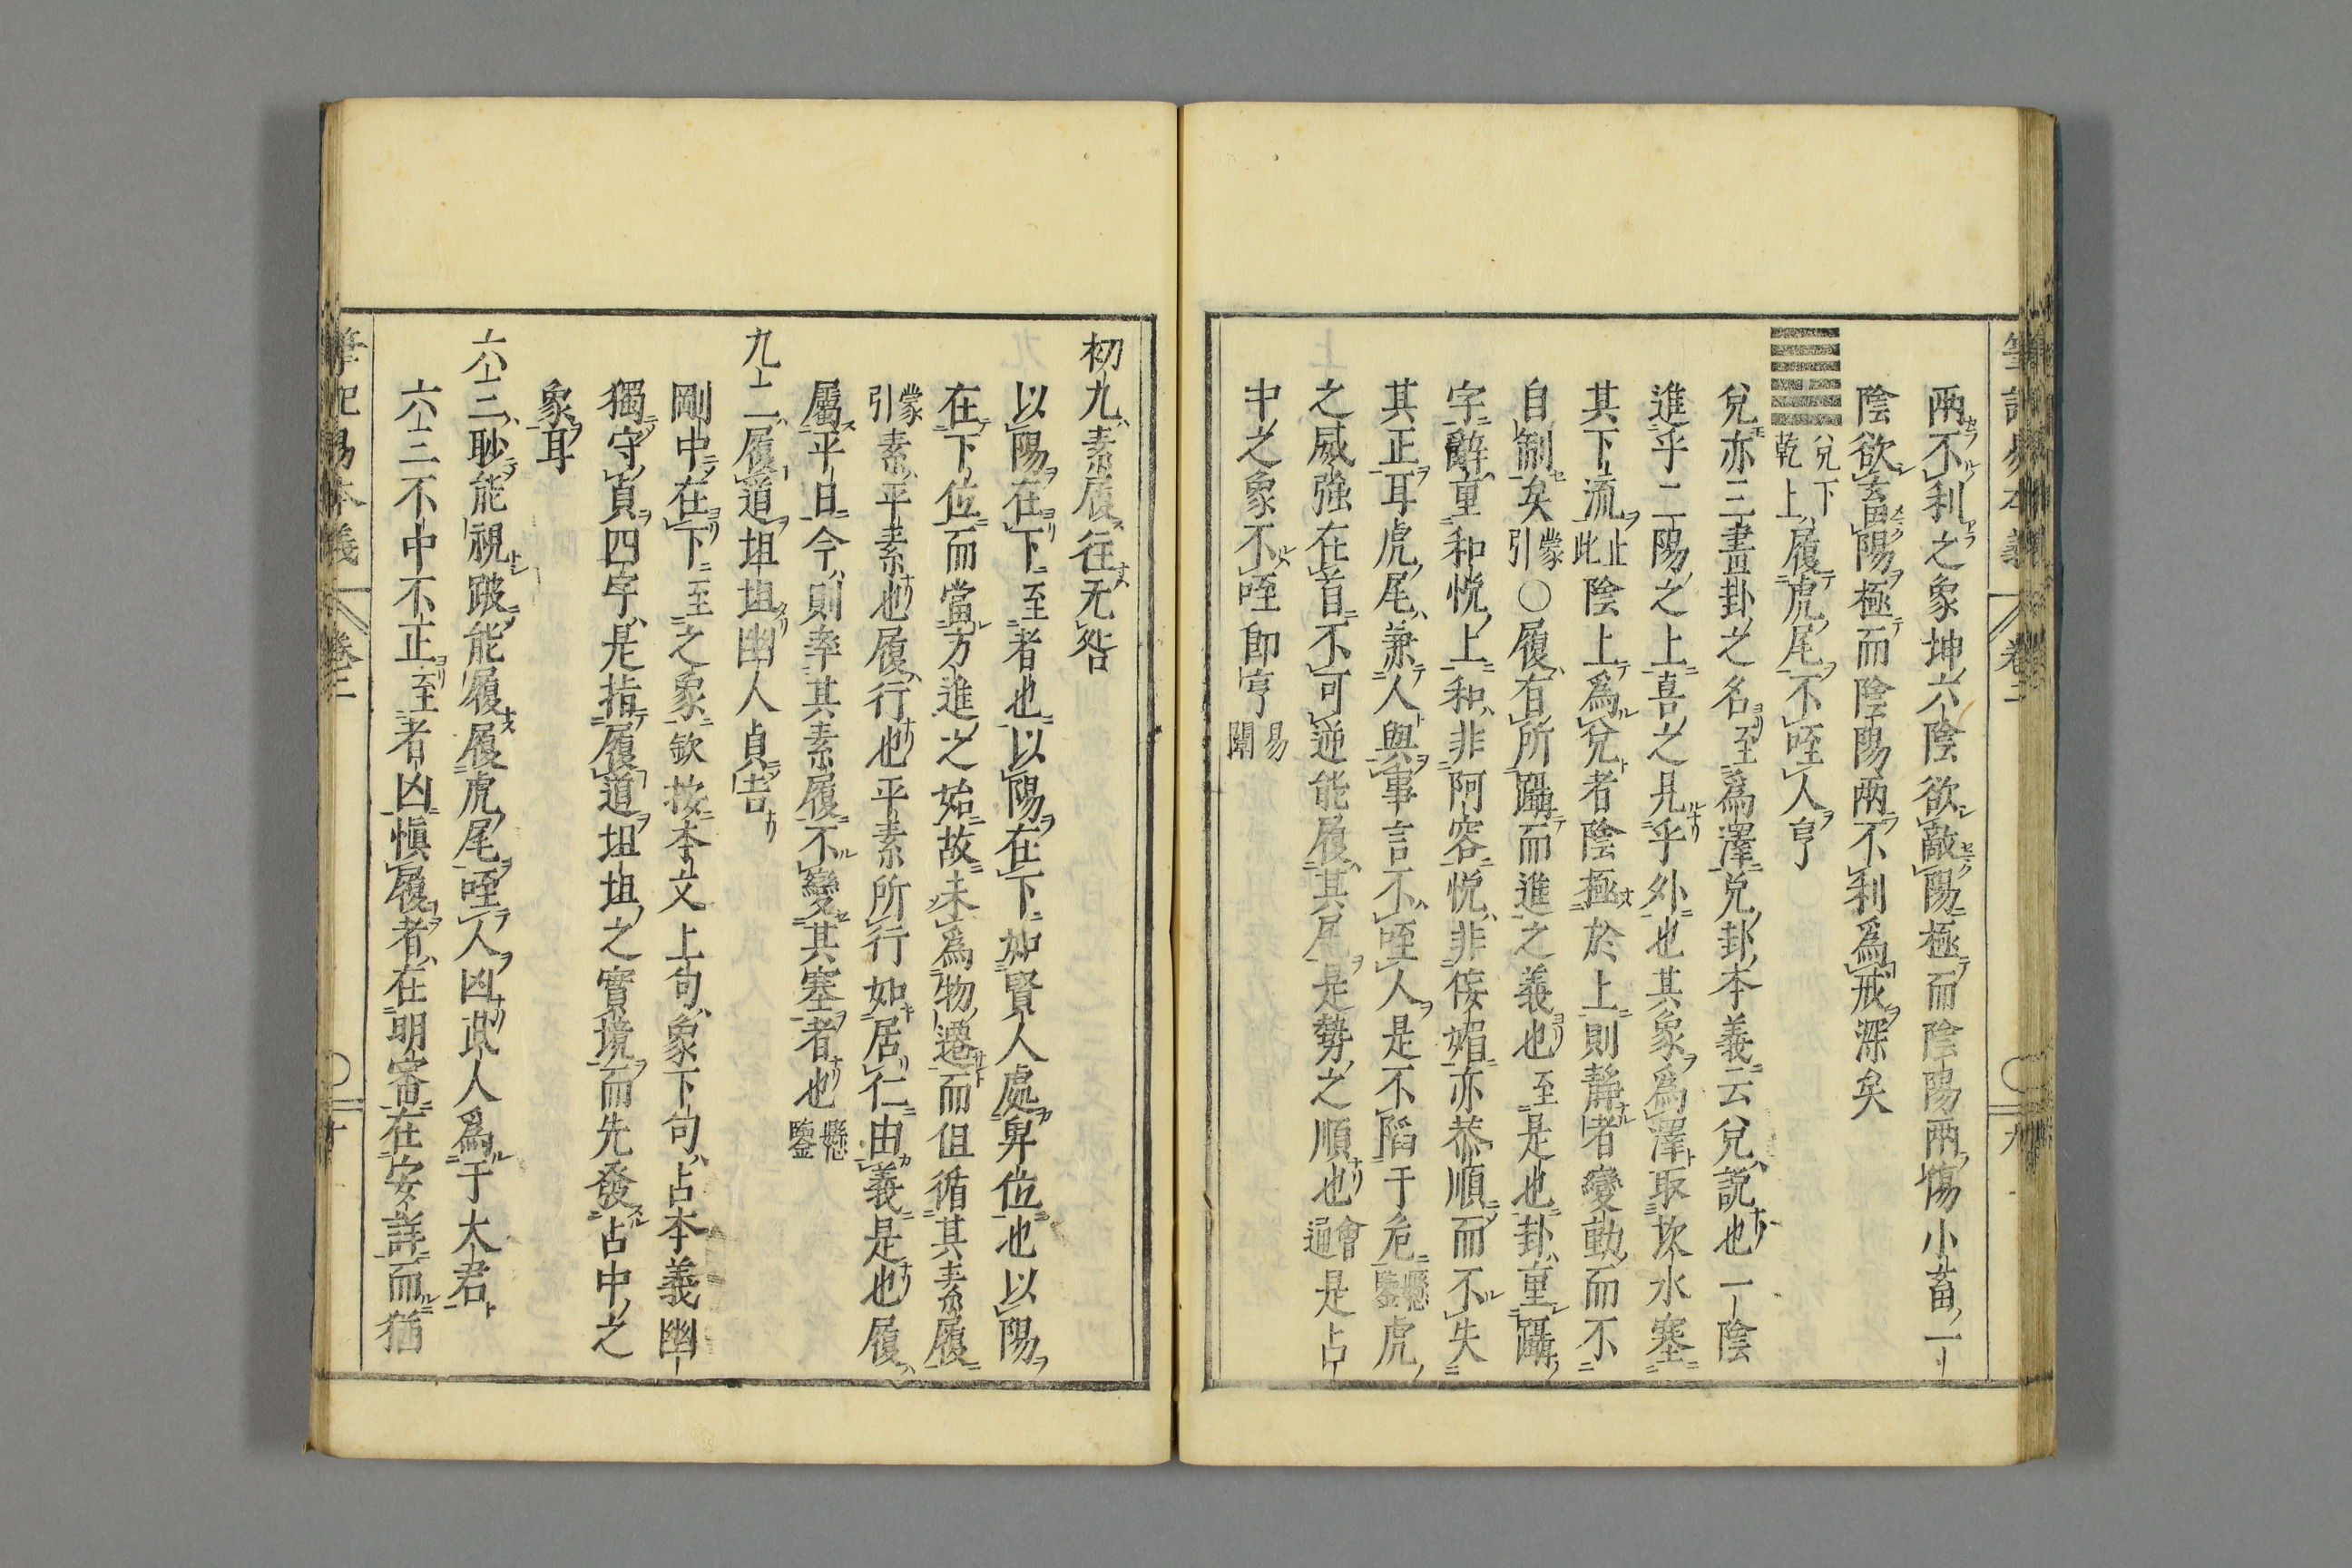 兩不利之象坤六陰欲敵陽極而陰陽兩傷小畜一
陰欲畜陽極而陰陽兩不利爲戒深矣
兌下乾上履虎尾不咥人亨
兌亦三畫卦之名至爲澤兌卦本義云兌說也一陰
進乎二陽之上喜之見乎外也其象爲澤取坎水塞
其下流止此陰上爲兌者陰極於上則靜者變動而不
自制矣蒙引○履有所躡而進之義也至是也卦重躡
字辭重和悅上和非阿容悅非倭媚亦恭順而不失
其正耳虎尾兼人與事言不咥人是不陷于危懸鑒虎
之威強在首不可逆能履其尾是勢之順也會通是占
中之象不咥即亨易闡
筆記易本義 卷二 九
初九素履往无咎
以陽在下至者也以陽在下如賢人處卑位也以陽
在下位而當方進之始故未爲物遷而但循其素履
蒙引素平素也履行也平素所行如居仁由義是也履
屬平日今則率其素履不變其塞者也懸鑒
九二履道坦坦幽人貞吉
剛中在下至之象欽按本文上句象下句占本義幽
獨守貞四字是指履道坦坦之實境而先發占中之
象耳
六三眇能視跛能履履虎尾咥人凶武人爲于大君
六三不中不正至者凶愼履者在明審在安詳而猶
筆記易本義 卷二 十